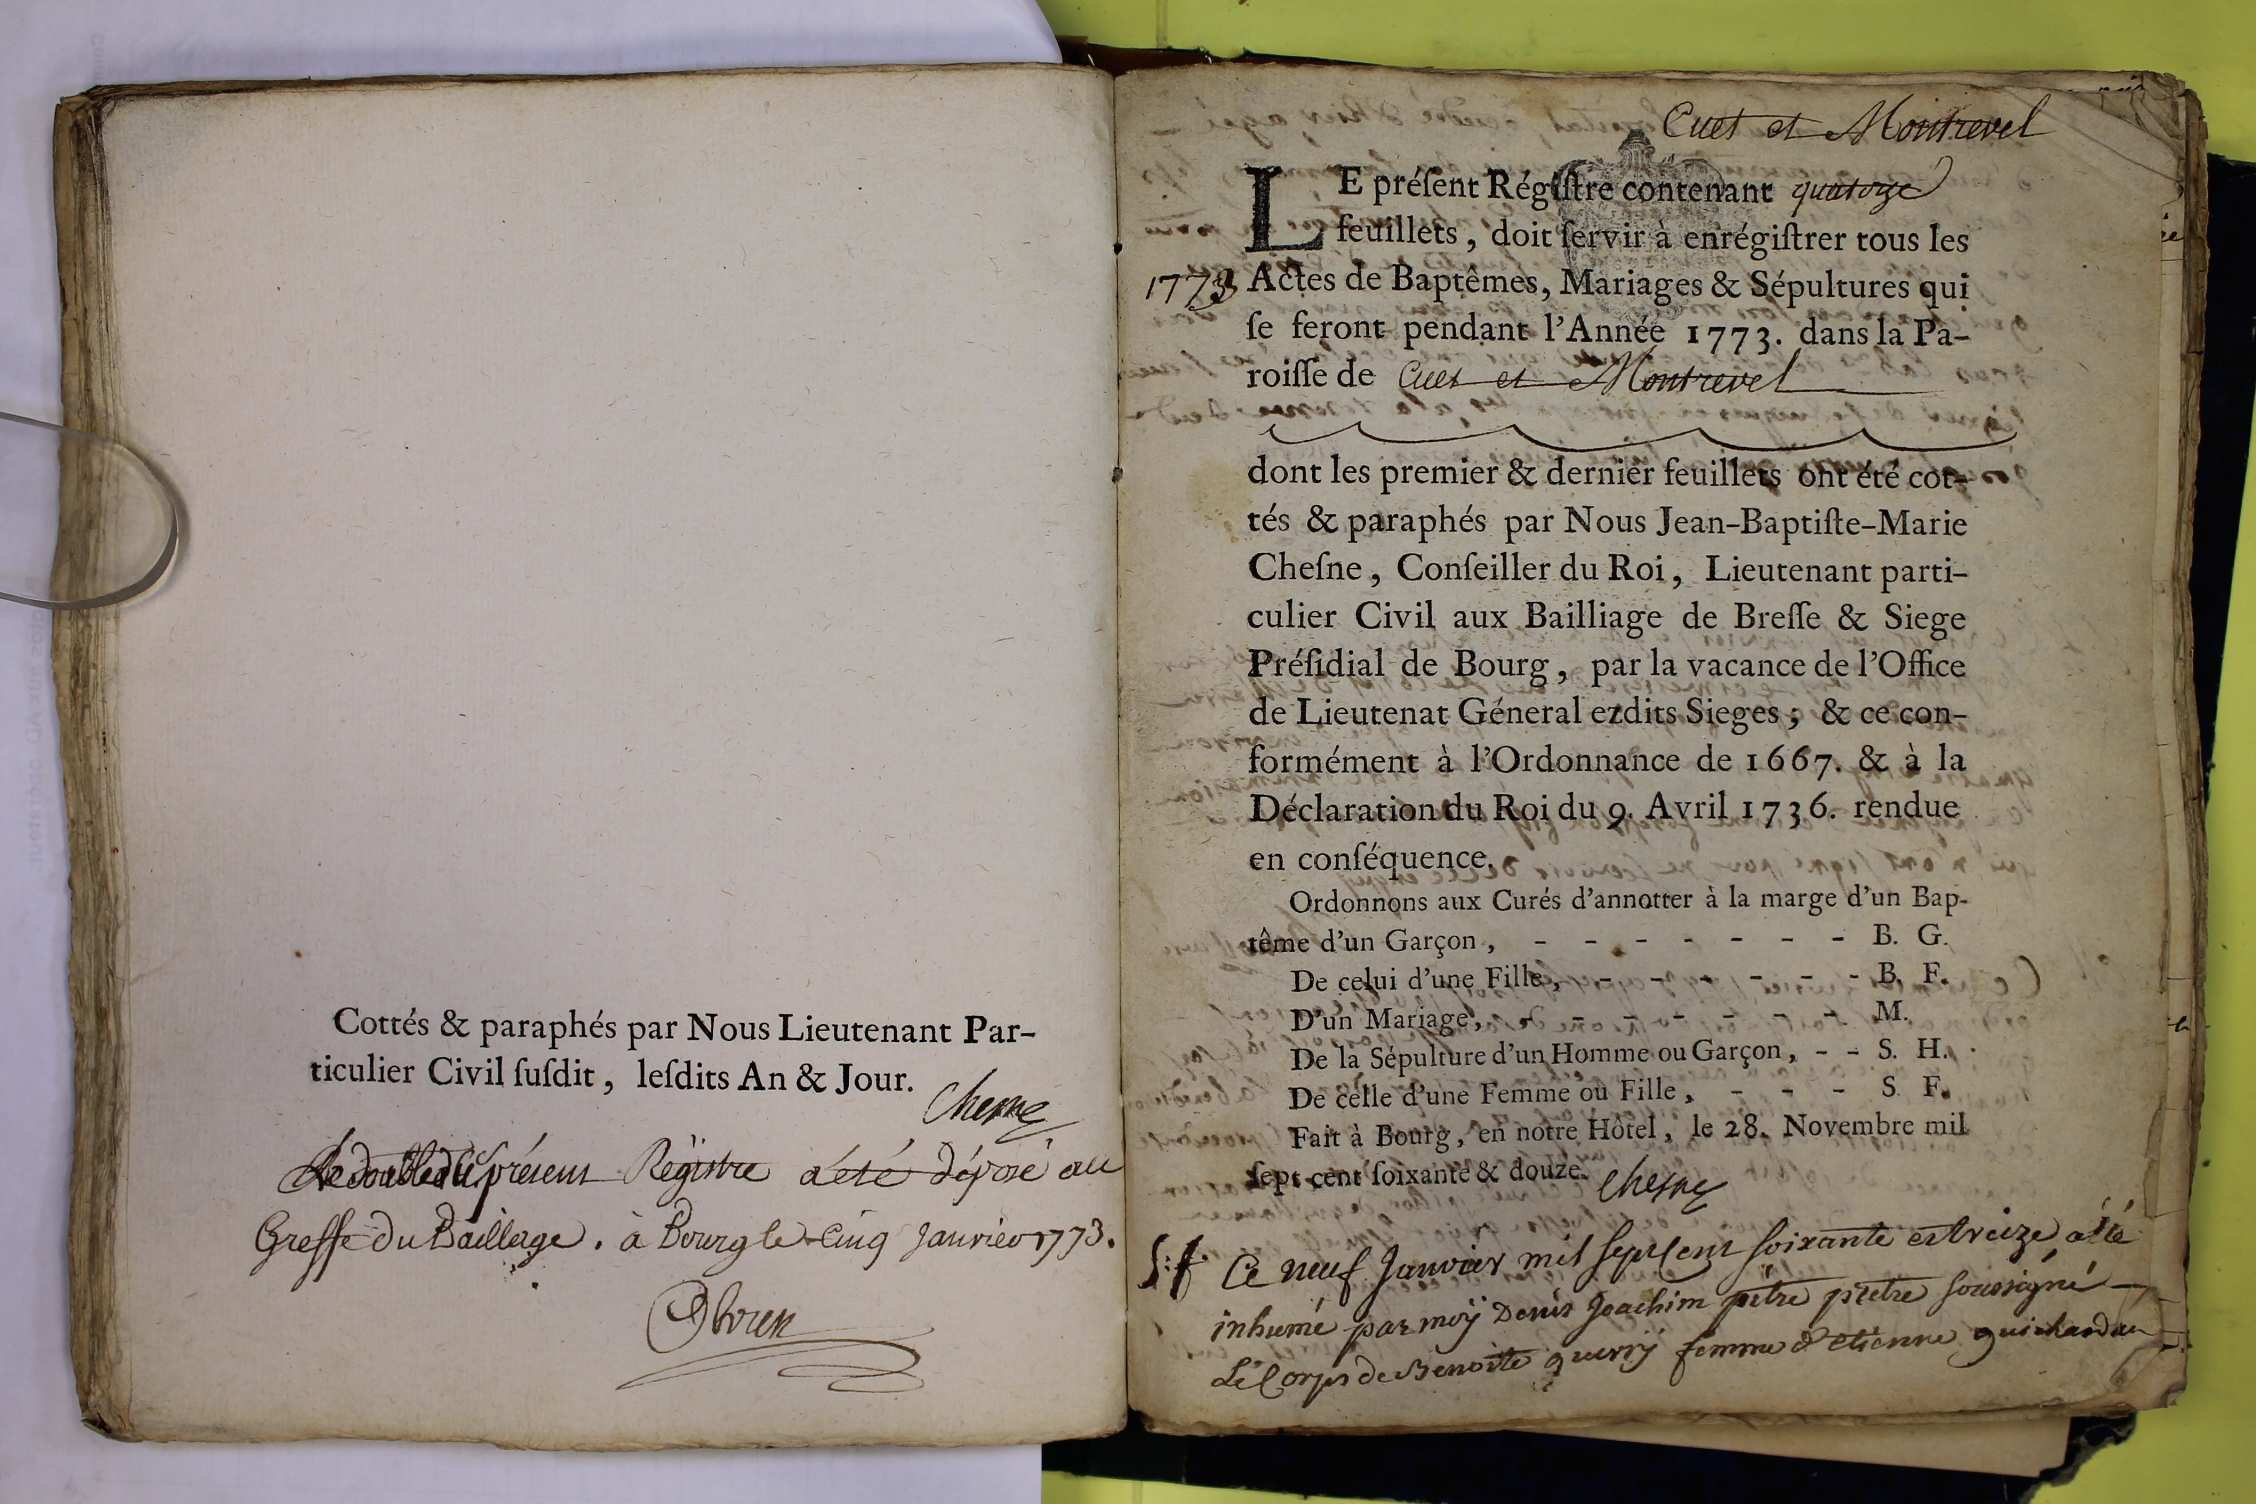 Cottés & paraphés par Nous Lieutenant Par-
ticulier Civil ſuſdit, leſdits An & Jour.
Chesne
Le double du présent Régistre a été déposé au
Greffe du Bailliage. à Bourg le Cinq Janvier 1773.
Cuet et Montrevel
LE préſent Régiſtre contenant quatorze
feuillets, doit ſervir à enrégiſtrer tous les
1773 Actes de Baptêmes, Mariages & Sépultures qui
ſe feront pendant l'Année 1773. dans la Pa-
roiſſe de Cuet et Montrevel
dont les premier & dernier feuillets ont été cot-
tés & paraphés par Nous Jean-Baptiſte-Marie
Cheſne, Conſeiller du Roi, Lieutenant parti-
culier Civil aux Bailliage de Breſſe & Siege
Préſidial de Bourg, par la vacance de l'Office
de Lieutenat Géneral ezdits Sieges; & ce con-
formément à l'Ordonnance de 1667. & à la
Déclaration du Roi du 9. Avril 1736. rendue
en conſéquence.
Ordonnons aux Curés d'annotter à la marge d'un Bap-
tême d'un Garçon, - - - - - - - B. G.
De celui d'une Fille, - - - - - - B. F.
D'un Mariage, - - - - - - - M.
De la Sépulture d'un Homme ou Garçon, - - S. H.
De celle d'une Femme ou Fille, - - - S. F.
Fait à Bourg, en notre Hôtel, le 28. Novembre mil
ſept cent ſoixante & douze. Chesne
S:f. Ce neuf Janvier mil sept cent soixante et treize a été
inhumé par moÿ Denis Joachim pêtre prêtre soussigné
Le Corps de Benoite querrÿ femme d'etienne guichardan